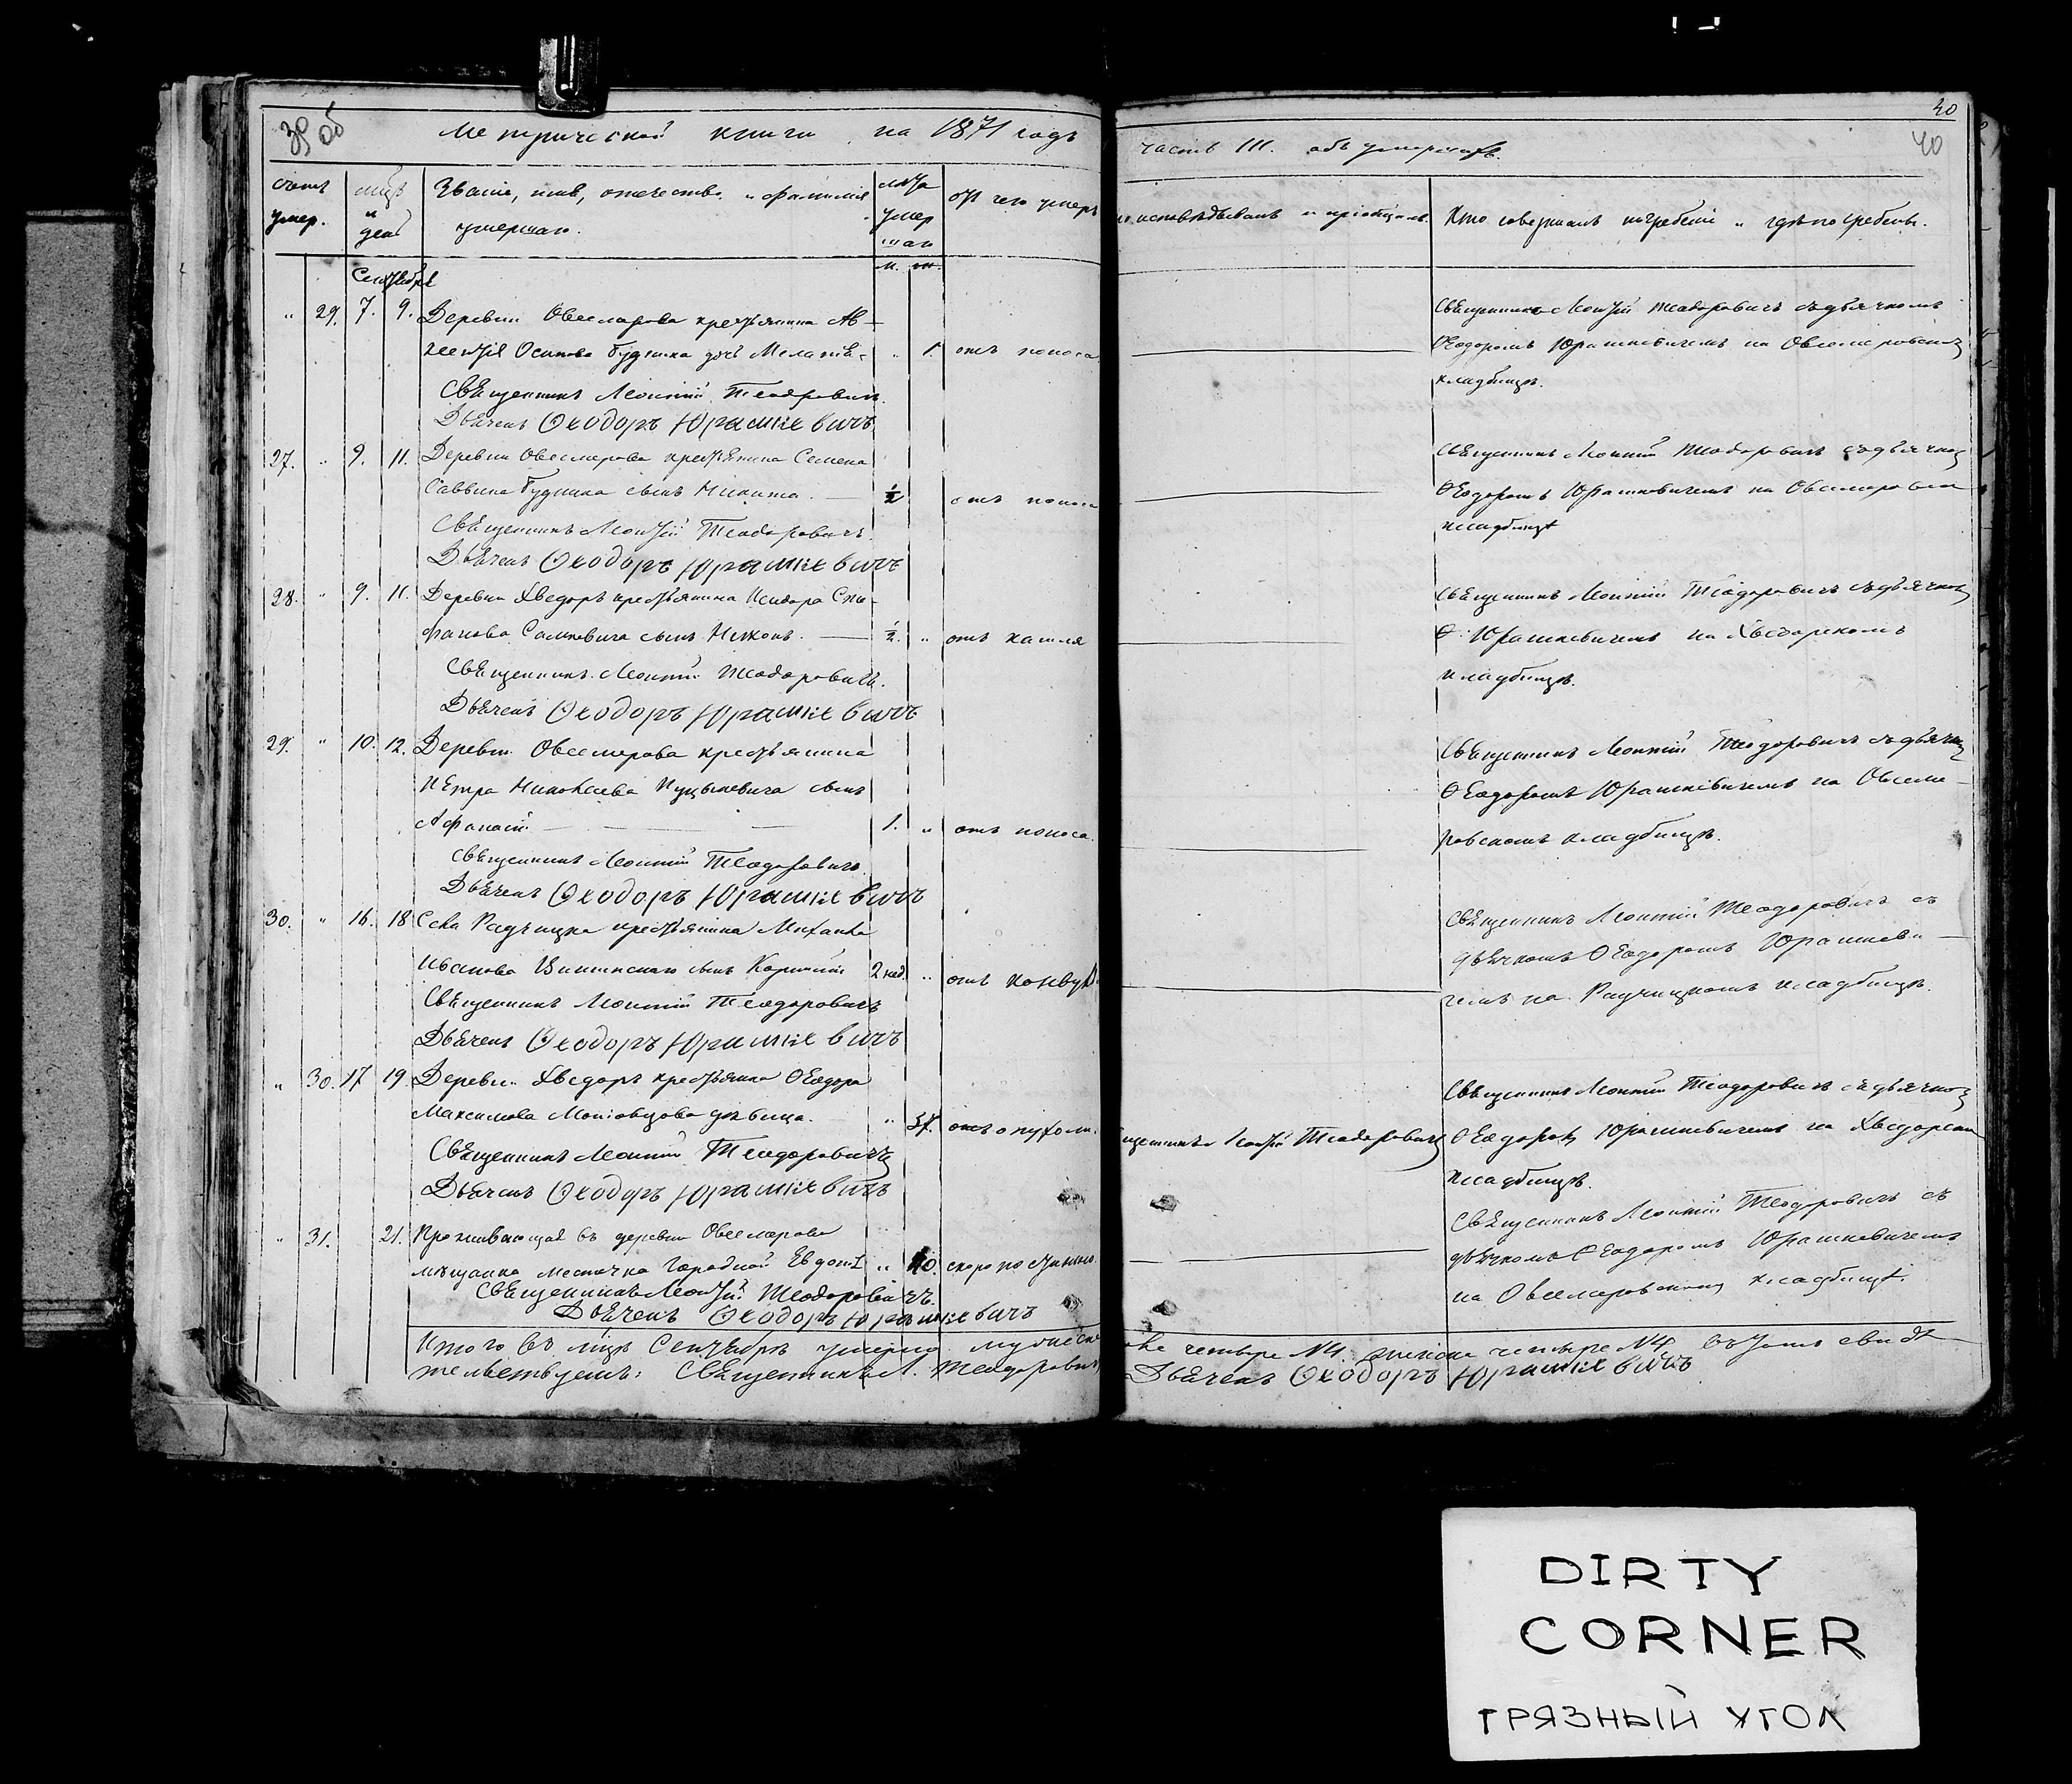 39 об
Метрической книги на 1871 годъ
часть III. объ умершихъ.
40
40
счетъ умер.
мцъ и день
Званіе, имя, отечество и фамилія умершаго.
лѣта умершаго
м. ж.
отъ чего умеръ
исповѣдывалъ и пріобщалъ
Кто совершалъ погребеніе и гдѣ погребены.
Сентября
" 29. 7. 9. Деревни Овсемирова крестьянина Ав-
ксентія Осипова Будника дочь Меланія - " 1. отъ поноса
Священникъ Леонтій Теодоровичъ.
Дьячекъ Ѳеодоръ Юрашкевичъ
Священникъ Леонтій Теодоровичъ съ дьячкомъ
Ѳеодоромъ Юрашкевичемъ на Овсемировскомъ
кладбищѣ.
27. " 9. 11. Деревни Овсемирова крестьянина Семена
Саввина Будника сынъ Никита. ½ отъ поноса
Священникъ Леонтій Теодоровичъ.
Дьячекъ Ѳеодоръ Юрашкевичъ
Священникъ Леонтій Теодоровичъ съ дьячкомъ
Ѳеодоромъ Юрашкевичемъ на Овсемировском
кладбищѣ
28. " 9. 11. Деревни Хведоръ крестьянина Исидора Сте-
фанова Самкевича сынъ Никонъ. ½. " отъ кашля
Священникъ Леонтій Теодоровичъ.
Дьячекъ Ѳеодоръ Юрашкевичъ
Священникъ Леонтій Теодоровичъ съ дьячком
Ѳ. Юрашкевичемъ на Хведорскомъ
кладбищѣ.
29. " 10. 12. Деревни Овсемирова крестьянина
Петра Николаева сынъ
Афанасій. 1. " отъ поноса.
Священникъ Леонтій Теодоровичъ.
Дьячекъ Ѳеодоръ Юрашкевичъ
Священникъ Леонтій Теодоровичъ съ дьячком
Ѳеодоромъ Юрашкевичемъ на Овсеми-
ровскомъ кладбищѣ.
30. " 16. 18 Села Радчицка крестьянина Михаила
Иванова сынъ Корнилій 2 нед. " отъ конвул.
Священникъ Леонтій Теодоровичъ
Дьячекъ Ѳеодоръ Юрашкевичъ
Священникъ Леонтій Теодоровичъ съ
дьячкомъ Ѳеодоромъ Юрашкеви-
чемъ на Радчицкомъ кладбищѣ.
" 30. 17 19. Деревни Хведоръ крестьянина Ѳеодора
Максимова дѣвица. " 37. отъ опухоли.
Священникъ Леонтій Теодоровичъ
Дьячекъ Ѳеодоръ Юрашкевичъ
щенникъ Леонтій Теодоровичъ
Священникъ Леонтій Теодоровичъ съ дьячком
Ѳеодором Юрашкевичемъ на Хведорском
кладбищѣ.
" 31. 21. Проживающая въ деревни Овсемирова
мѣщанка местечка Городной Евдокія " 40. скоропостижно.
Священникъ Леонтій Теодоровичъ.
Дьячекъ Ѳеодоръ Юрашкевичъ
Священникъ Леонтій Теодоровичъ съ
дьячкомъ Ѳеодоромъ Юрашкевичемъ
на Овсемировском кладбищѣ.
Итого въ мцѣ Сентябрѣ умерло мужеска четыре №4. женска четыре №4. Въ томъ свидѣ-
тельствуемъ: Священникъ Л. Теодоровичъ Дьячекъ Ѳеодоръ Юрашкевичъ
DIRTY
CORNER
ГРЯЗНЫЙ УГОЛ